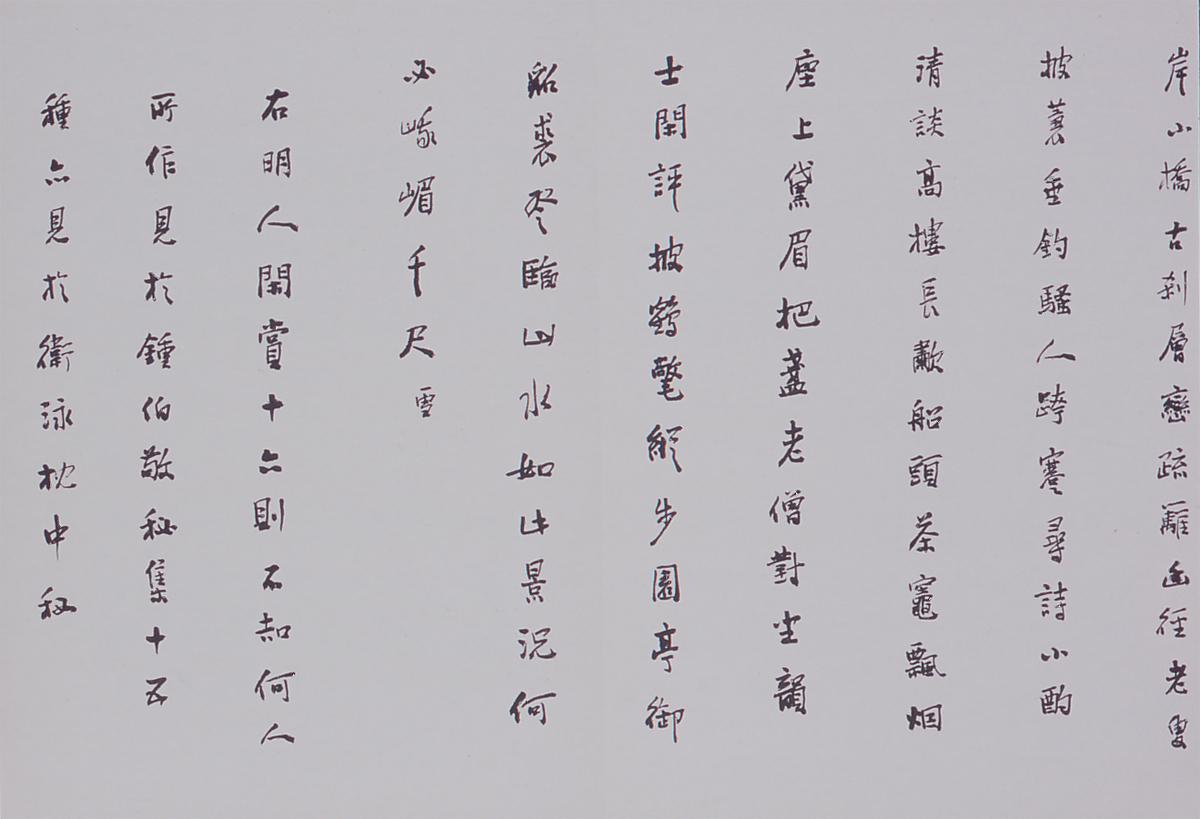 岸小橋古剎層巒疏籬幽徑老叟
披蓑垂釣騷人跨蹇尋詩小酌
清談高樓長歗船頭茶竈飄烟
座上黛眉把盞老僧對坐韻
士閒評披鶴氅縱步園亭御
貂裘登臨山水如此景況何
必峨嵋千尺雪
右明人閒賞十六則不知何人
所作見於鍾伯敬秘集十五
種亦見於衛泳枕中秘